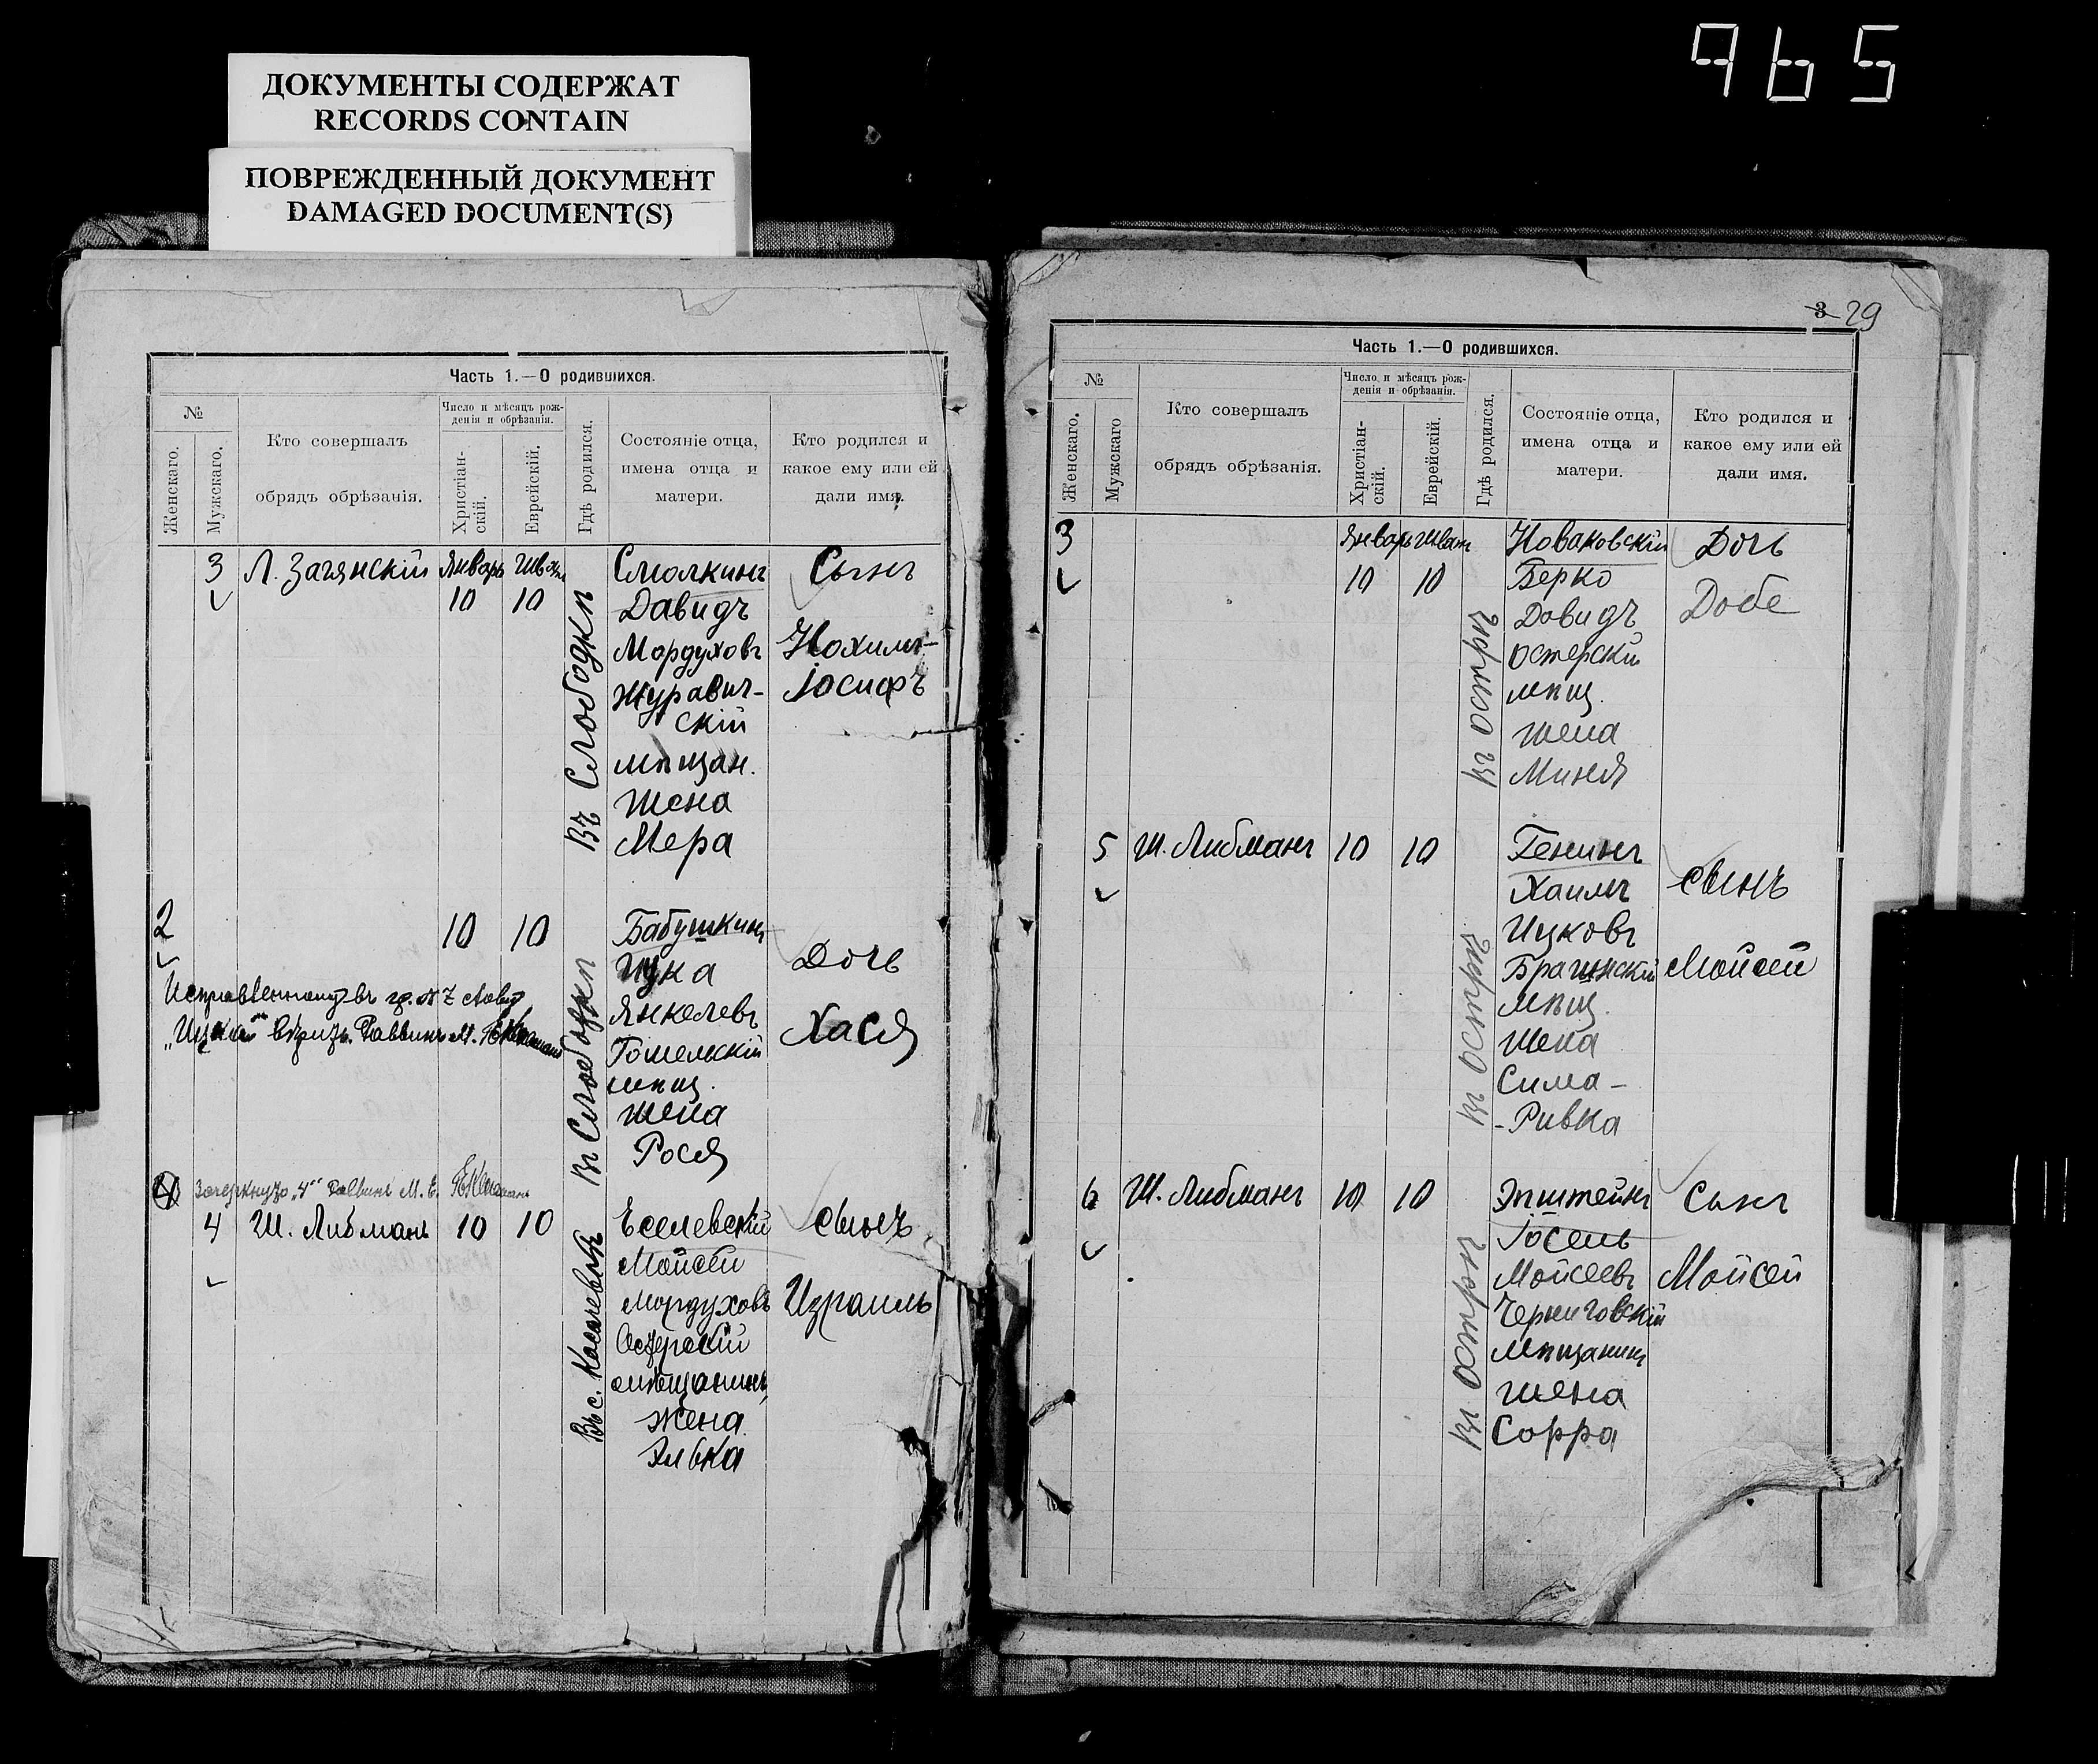 965
ДОКУМЕНТЫ СОДЕРЖАТ
RECORDS CONTAIN
ПОВРЕЖДЕННЫЙ ДОКУМЕНТ
DAMAGED DOCUMENT(S)
Часть 1.—О родившихся.
№
Женскаго.
Мужскаго.
Кто совершалъ
обрядъ обрѣзанія.
Число и мѣсяцъ рож-
денія и обрѣзанія.
Христіан-
скій.
Еврейскій.
Гдѣ родился.
Состояніе отца,
имена отца и
матери.
Кто родился и
какое ему или ей
дали имя.
3 Л. Загянскій Январь Шват Смолкинъ Сынъ
10 10 Давидъ
Въ Слободкѣ
Мордуховъ Нохимъ-
Журавич- Іосифъ
скій
мѣщан.
жена
Мера
2 10 10 Бабушкинъ
Ицка Дочь
Въ Слободкѣ
Янкелевъ Хася
Гомельскій
мѣщ.
жена
Рося
Исправленному въ гр. № 7 слову
"Ицка" вѣрить. Раввинъ М.
Зачеркнуто "4" Раввинъ М. Е.
4 Ш. Либманъ 10 10 Еселевскій сынъ
Въ с.
Мойсей
Мордуховъ Израиль
Остерскій
мѣщанинъ,
жена
Элька
3 29
Часть 1.—О родившихся.
№
Женскаго.
Мужскаго
Кто совершалъ
обрядъ обрѣзанія.
Число и мѣсяцъ рож-
денія и обрѣзанія.
Христіан-
скій.
Еврейскій.
Гдѣ родился.
Состояніе отца,
имена отца и
матери.
Кто родился и
какое ему или ей
дали имя.
3 Январь Шват Новаковскій Дочь
10 10 Берко Добе
въ Острѣ
Довидъ
Остерскій
мѣщ.
жена
Миня
5 Ш. Либманъ 10 10 Генинъ
Хаимъ сынъ
въ Острѣ
Ицковъ
Брагинскій Мойсей
мѣщ.
жена
Сима-
-Ривка
6 Ш. Либманъ 10 10 Эпштейнъ Сынъ
въ Острѣ
Іосель
Мойсеевъ Мойсей
Черниговскій
мѣщанинъ
жена
Сорра